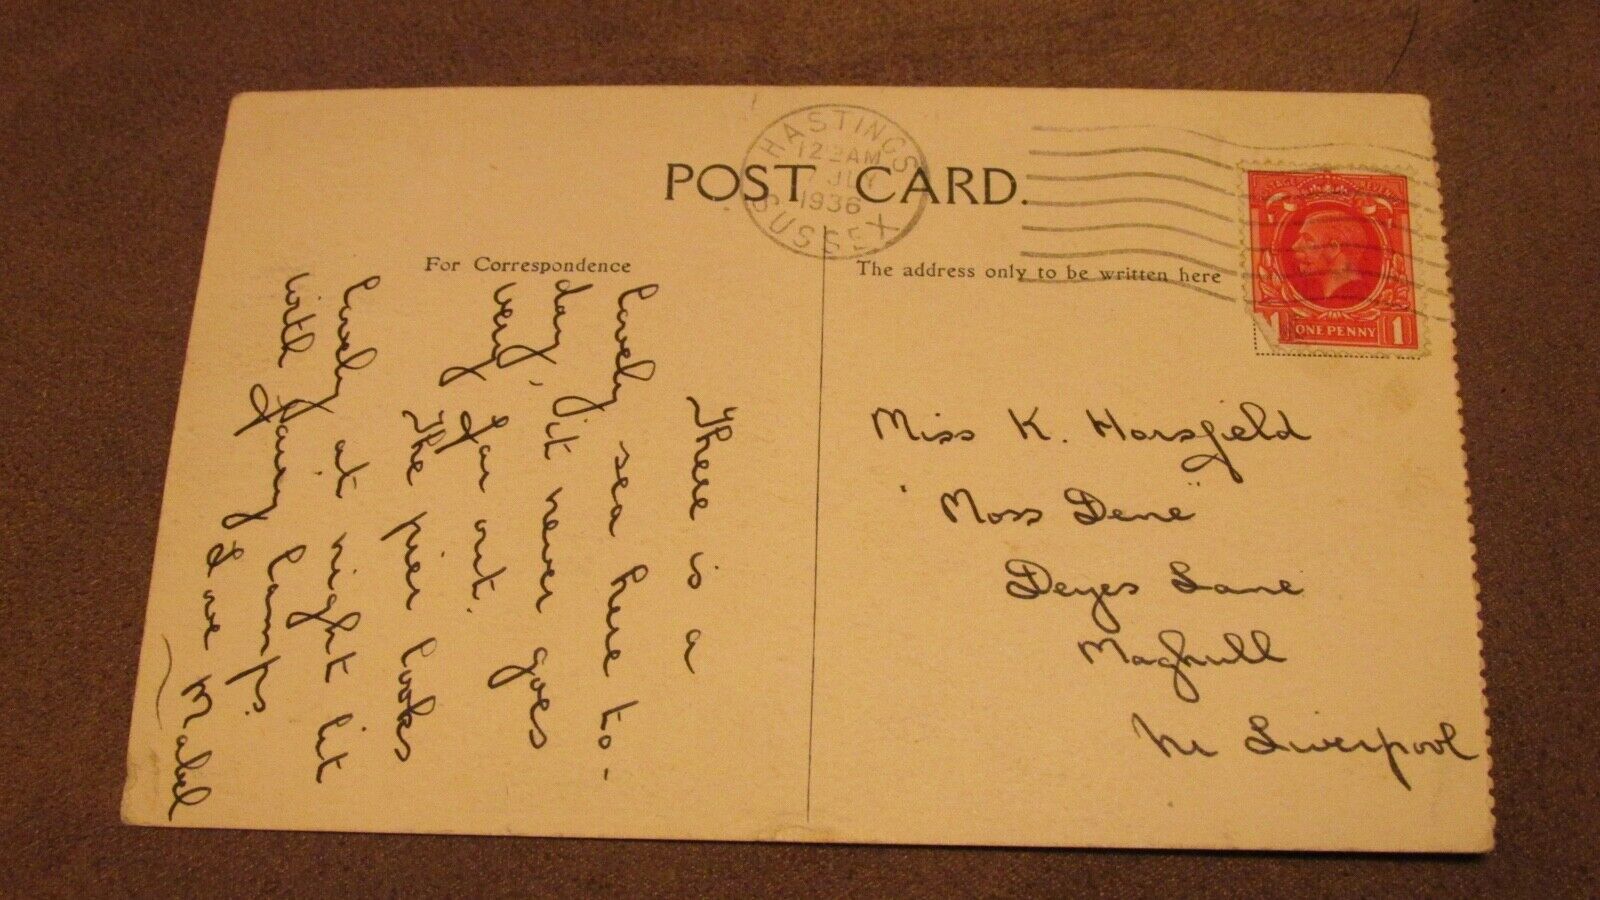 POST CARD.
HASTINGS
12 AM
JLY
1936
SUSSEX
POSTAGE REVENUE
1 ONE PENNY 1
For Correspondence
The address only to be written here
There is a
lovely sea here to-
day, it never goes
very far out.
The pier looks
lovely at night lit
with fairy lamps.
Love Mabel
Miss K. Horsfield
"Moss Dene"
Deyes Lane
Maghull
Nr Liverpool